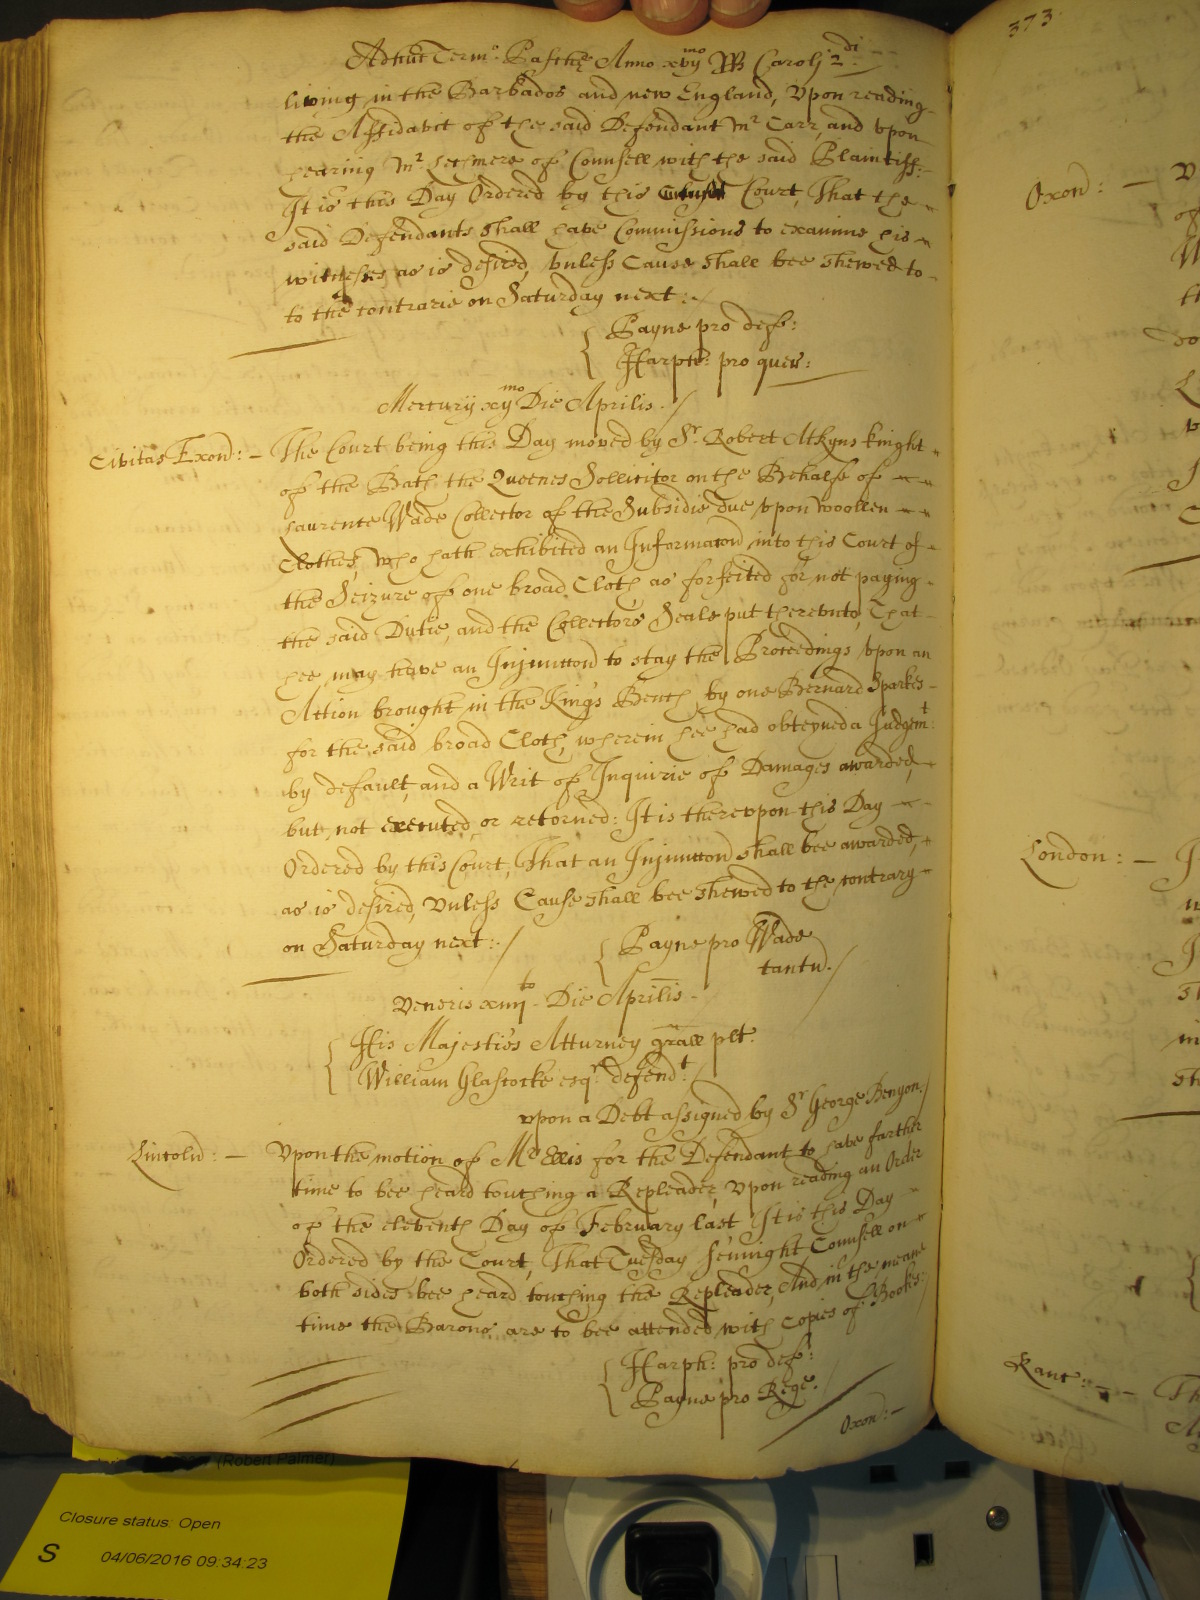 373
Adhuc Termo: Pasche Anno xvijmo RRs Carolj 2di
living in the Barbados and new England, Vpon reading
the Affidavit of the said Defendant Mr Carr, and vpon
hearing Mr Lechmere of Counsell with the said Plaintiff:
It is this Day Ordered by this Court, That the
said Defendants shall have Commissions to examine his
witnesses as is desired, vnless Cause shall bee shewed to
to the contrarie on Saturday next:
Payne pro def:
Harptr: pro quer:
Mercurij xijmo Die Aprilis.
Civitas Exon: - The Court being this Day moved by Sr. Robert Atkyns knight
of the Bath the Queenes Sollicitor on the Behalfe of
Laurence Wade Collector of the Subsidie due vpon woollen
Clothes, who hath exhibited an Informacon into this Court of
the Seizure of one broad Cloth as forfeited for not paying
the said Dutie, and the Collectors Seale put therevnto, That
hee may have an Injunccon to stay the Proceedings vpon an
Action brought in the Kings Bench by one Bernard Sparkes
for the said broad Cloth, wherein hee had obteyned a Judgemt:
by default, and a Writ of Inquirie of Damages awarded,
but not executed or retorned: It is therevpon this Day
Ordered by this Court, That an Injunccon shall bee awarded,
as is desired, Vnless Cause shall bee shewed to the contrary
on Saturday next:
Payne pro Wade
tantu.
Veneris xiiijto Die Aprilis.
His Majesties Atturney grall plt:
William Glascocke esqr. defendt:
vpon a Debt assigned by Sr George Benyon.
Lincoln: - Vpon the motion of Mr Ellis for the Defendant to have farther
time to bee heard touching a Repleader, Vpon reading an Order
of the eleventh Day of February last It is this Day
Ordered by the Court, That Tuesday sennight Counsell on
both sides bee heard touching the Repleader, And in the meane
time the Barons are to bee attended with Copies of Books:
Harptr: pro def:
Payne pro Rege.
Oxon: -
Oxon: -
London: -
Kanc: -
(Robert Palmer)
Closure status: Open
S 04/06/2016 09:34:23